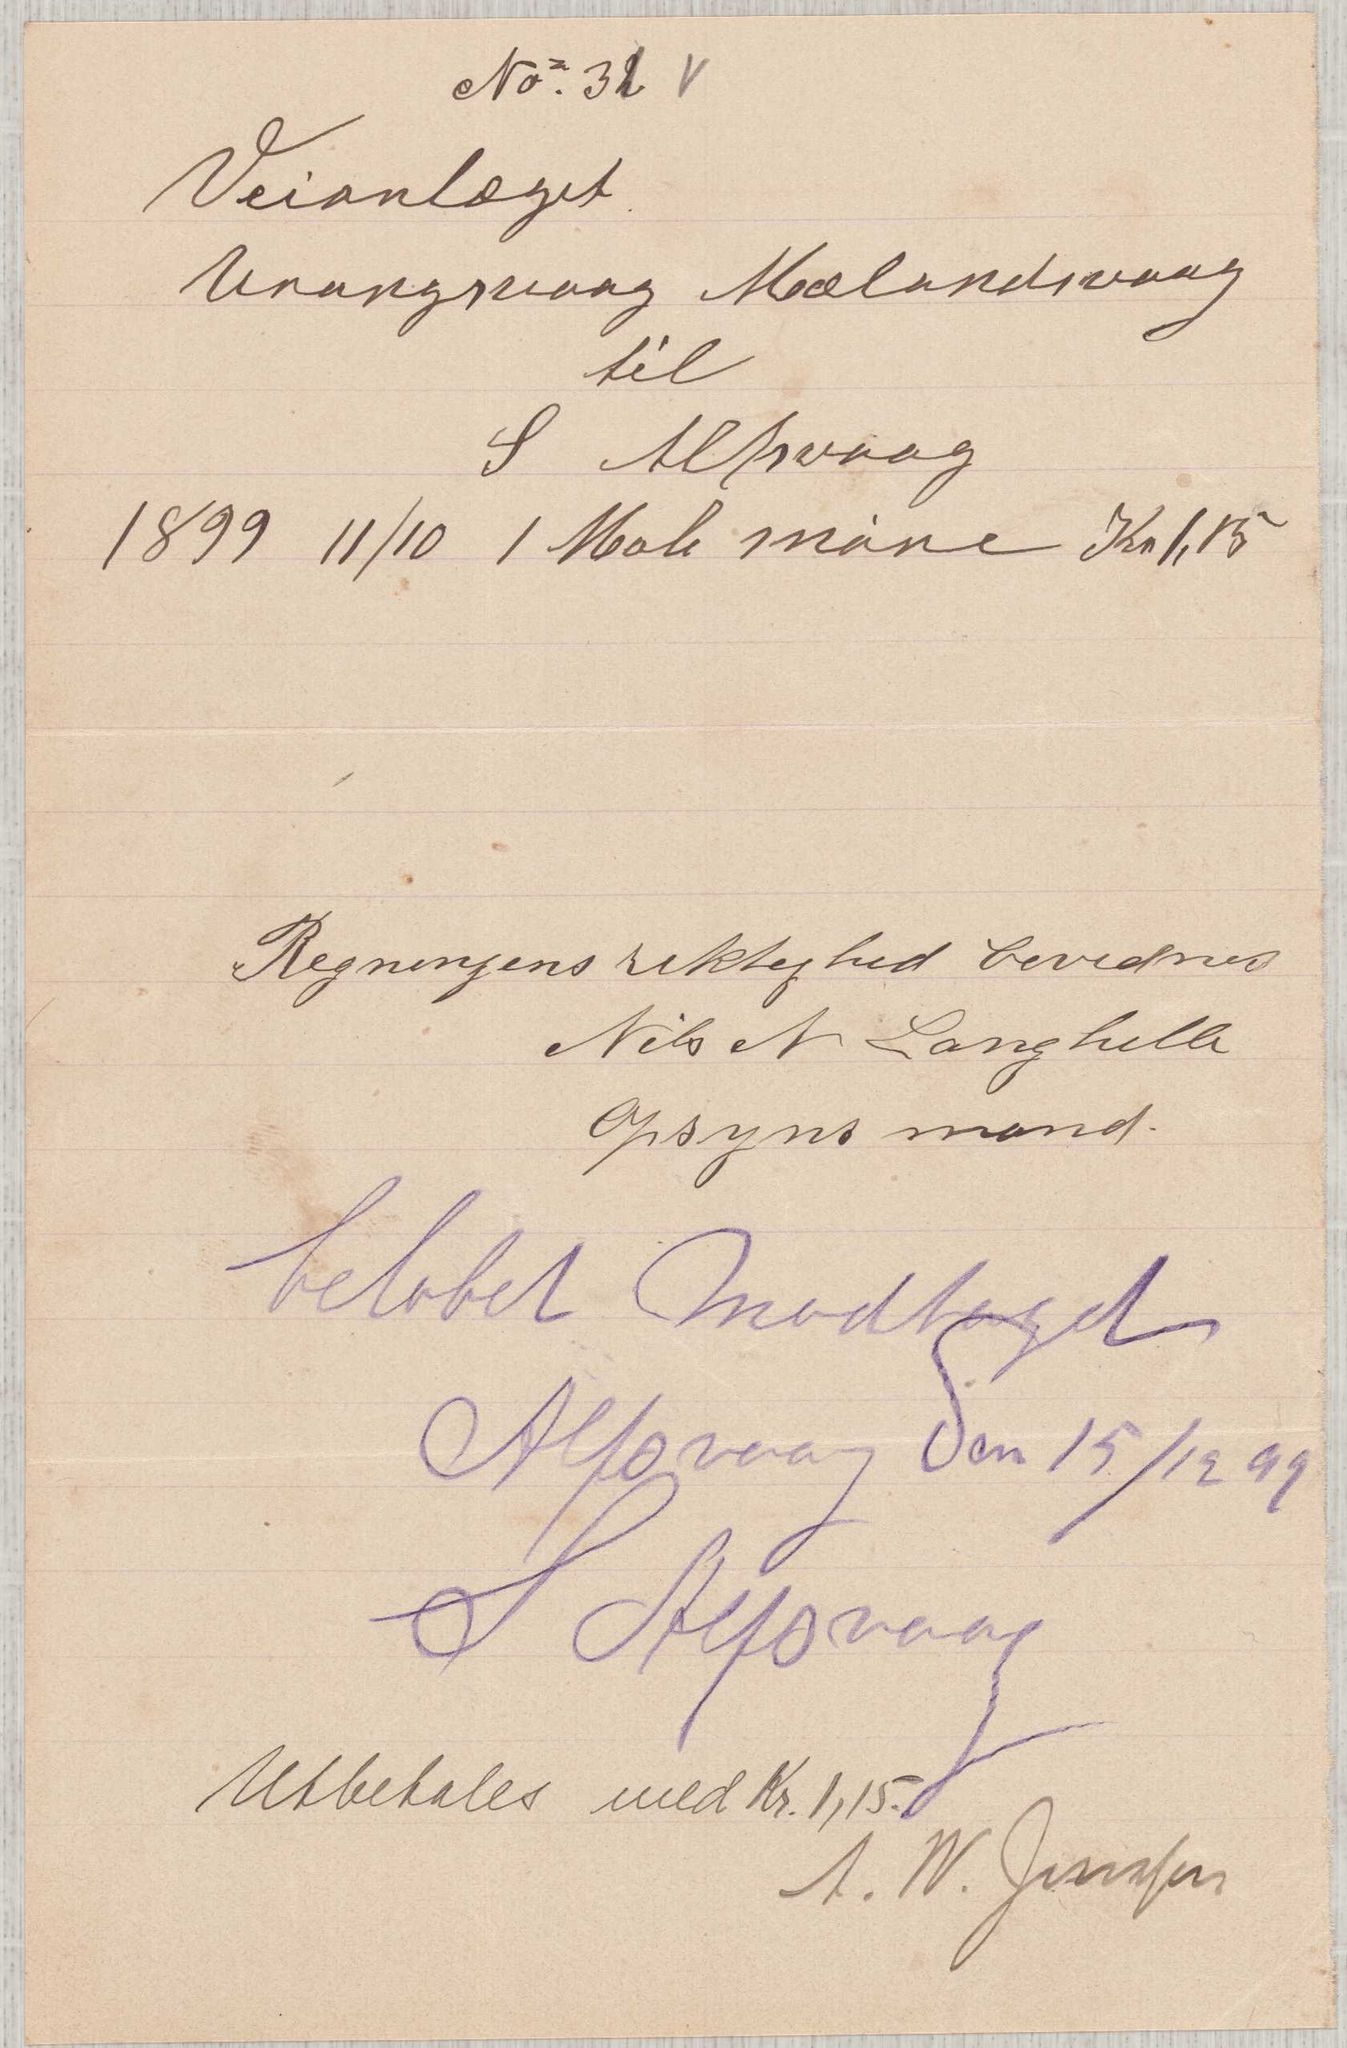 No. 31 V
Veianlæget
Urangsvaag Mælandsvaag
til
S Alfsvaag
1899 11/10 1 Maale Kr 1,15
Regningens riktighed bevidnes
Nils N Langhelle
Opsyns mand.
belobet Modtaget
Alfsvaag Den 15/12 99
S Alfsvaag
Utbetales med Kr. 1,15.
A. W. Jansen